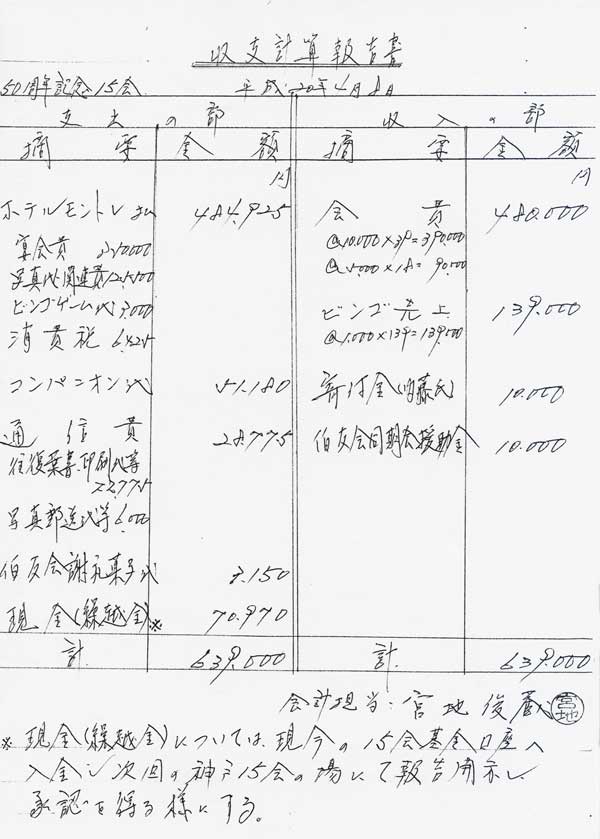 収支計算報告書
50周年記念15会 平成20年4月8日
支出の部 収入の部
摘要 金額 摘要 金額
円 円
ホテルモントレ 484,925 会費 480,000
宴会費 350,000 @10,000×39=390,000
写真代関連費 @5,000×18=90,000
ビンゴゲーム代 3,000 ビンゴ売上 139,000
消費税 6,425 @1,000×139=139,000
コンパニオン代 51,180 寄付金(内藤氏) 10,000
通信費 28,775 伯友会同期会援助金 10,000
往復葉書、印刷代等
22,775
写真郵送代等 6,000
伯友会謝礼菓子代 3,150
現金(繰越金)※ 70,970
計 639,000 計. 639,000
会計担当: 宮地俊 宮地
※現金(繰越金)については、現今の15会基金口座へ
入金し次回の神戸15会の場にて報告開示し
承認を得る様にする。